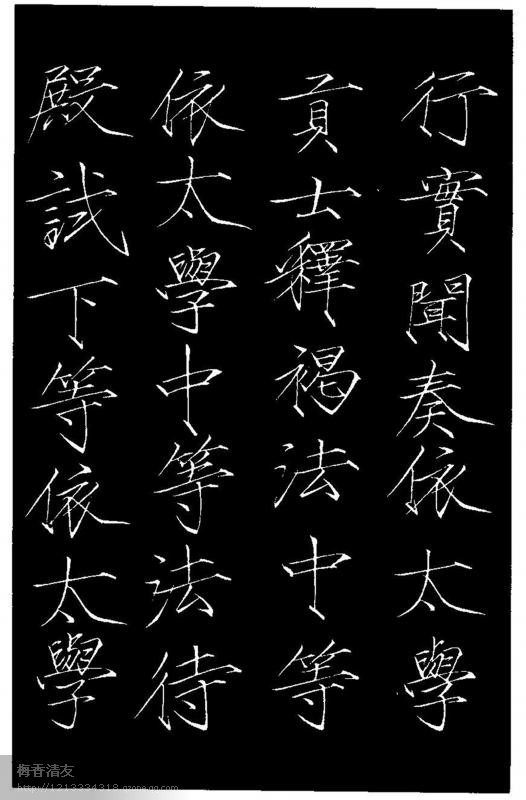 行實聞奏依太學
貢士釋褐法中等
依太學中等法待
殿試下等依太學
梅香清友
http://1213334318.qzone.qq.com